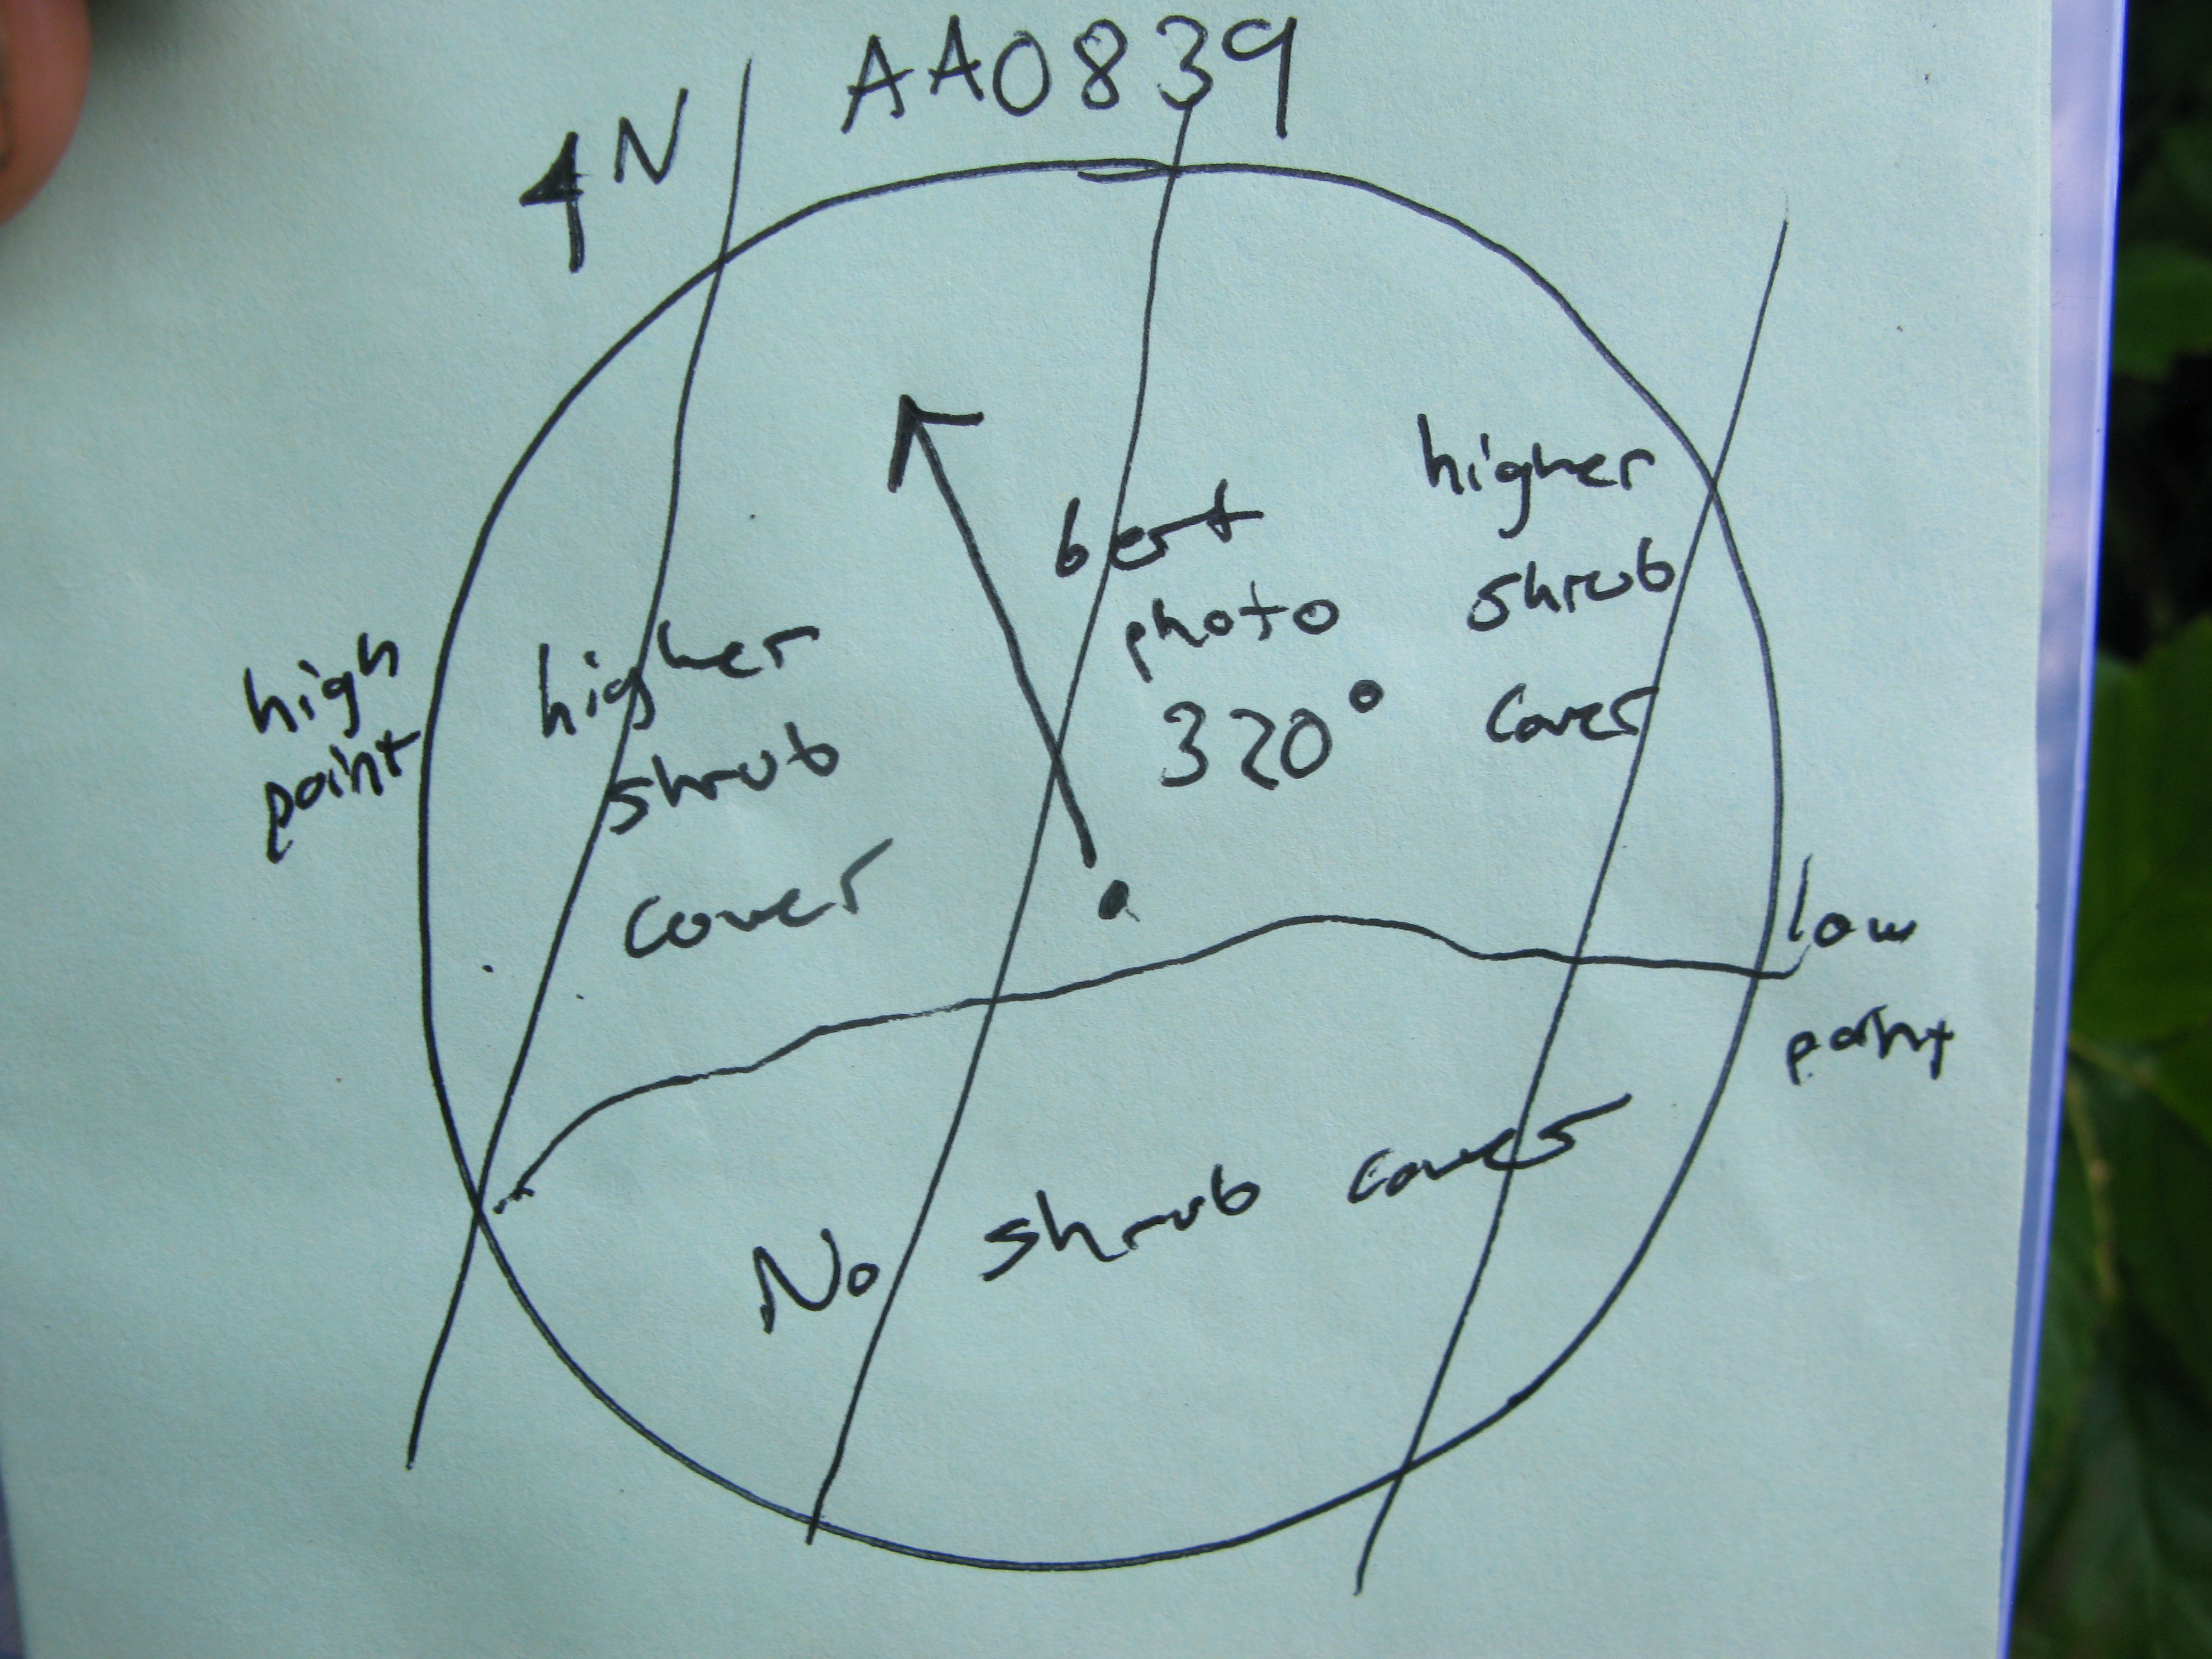 N
AA0839
high
point
higher
shrub
cover
best
photo
320°
higher
shrub
cover
low
point
No shrub cover